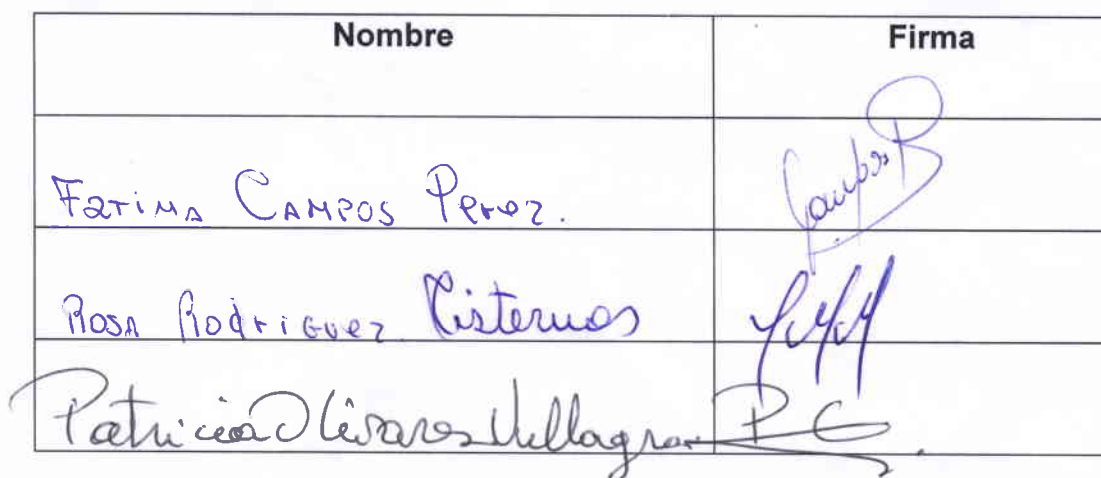 Nombre Firma
Fatima CAMPOS Perez. Campos B
Rosa Rodriguez Cisternas
Patricia Olivares Villagran P